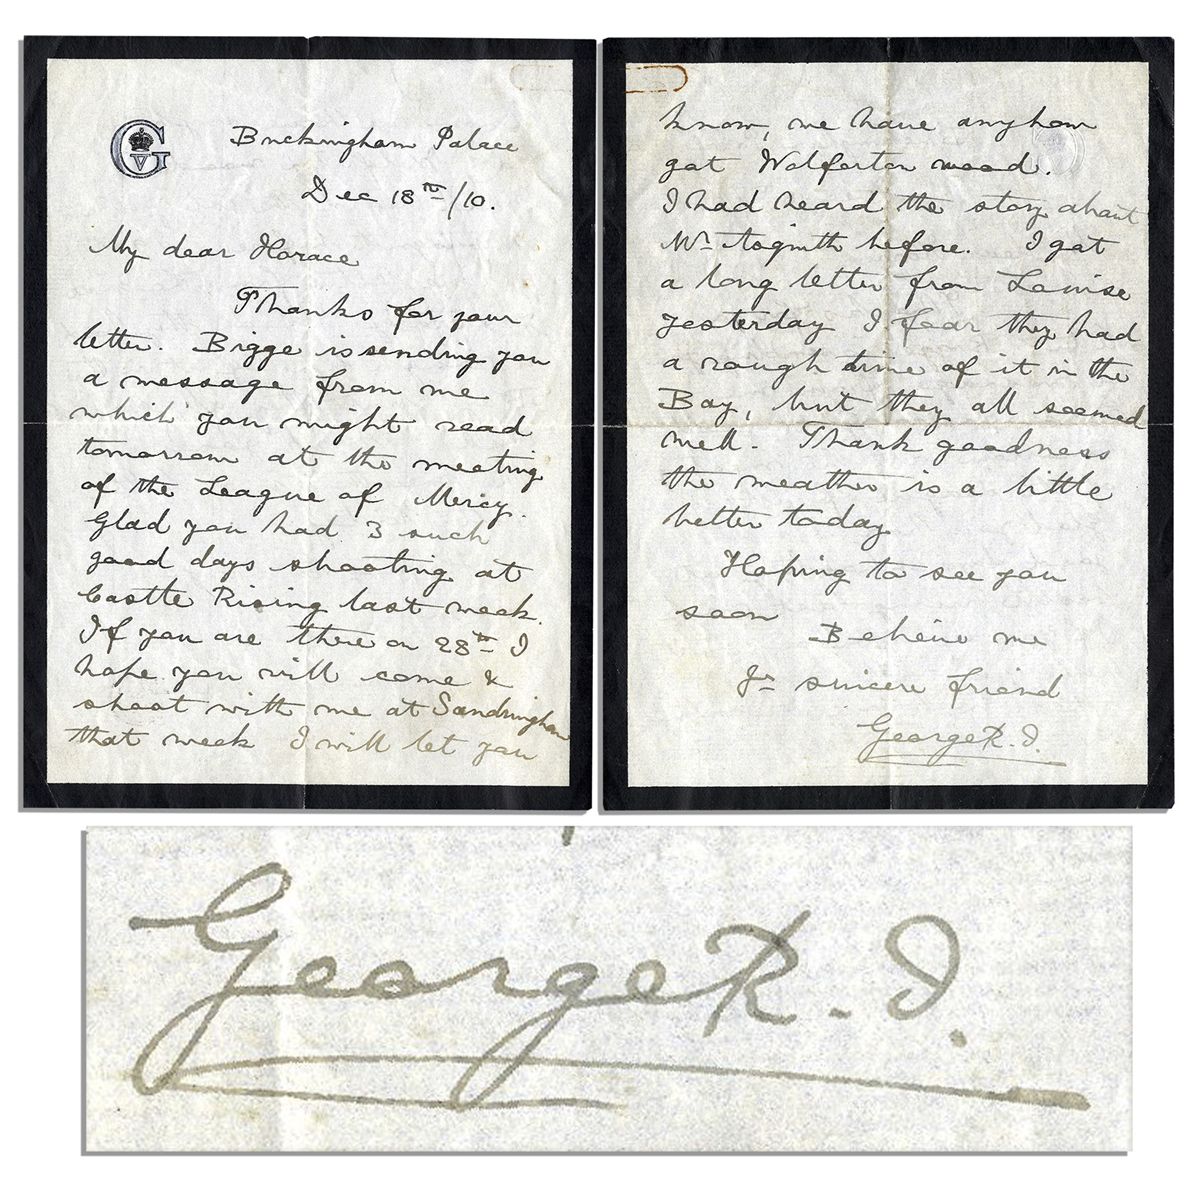 GV
Buckingham Palace
Dec 18th/10.
My dear Horace
Thanks for your
letter. Bigge is sending you
a message from me
which you might read
tomorrow at the meeting
of the League of Mercy.
Glad you had 3 such
good days shooting at
Castle Rising last week.
If you are there on 28th I
hope you will come &
shoot with me at Sandringham
that week I will let you
know, we have anyhow
got Wolferton wood.
I had heard the story about
Mr. before. I got
a long letter from Louise
yesterday I fear they had
a rough time of it in the
Bay, but they all seemed
well. Thank goodness
the weather is a little
better today
Hoping to see you
soon
Believe me
Yr sincere friend
George R. I.
George R. I.